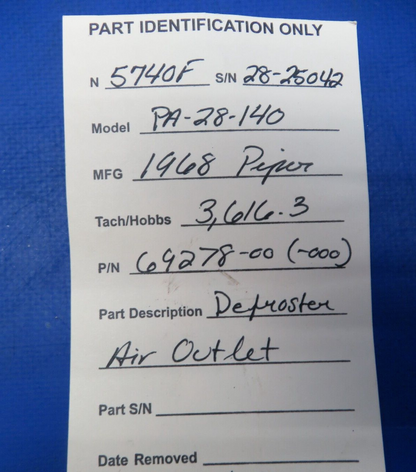 PART IDENTIFICATION ONLY
N 5740F S/N 28-25042
Model PA-28-140
MFG 1968 Piper
Tach/Hobbs 3,616.3
P/N 69278-00 (-000)
Part Description Defroster
Air Outlet
Part S/N
Date Removed